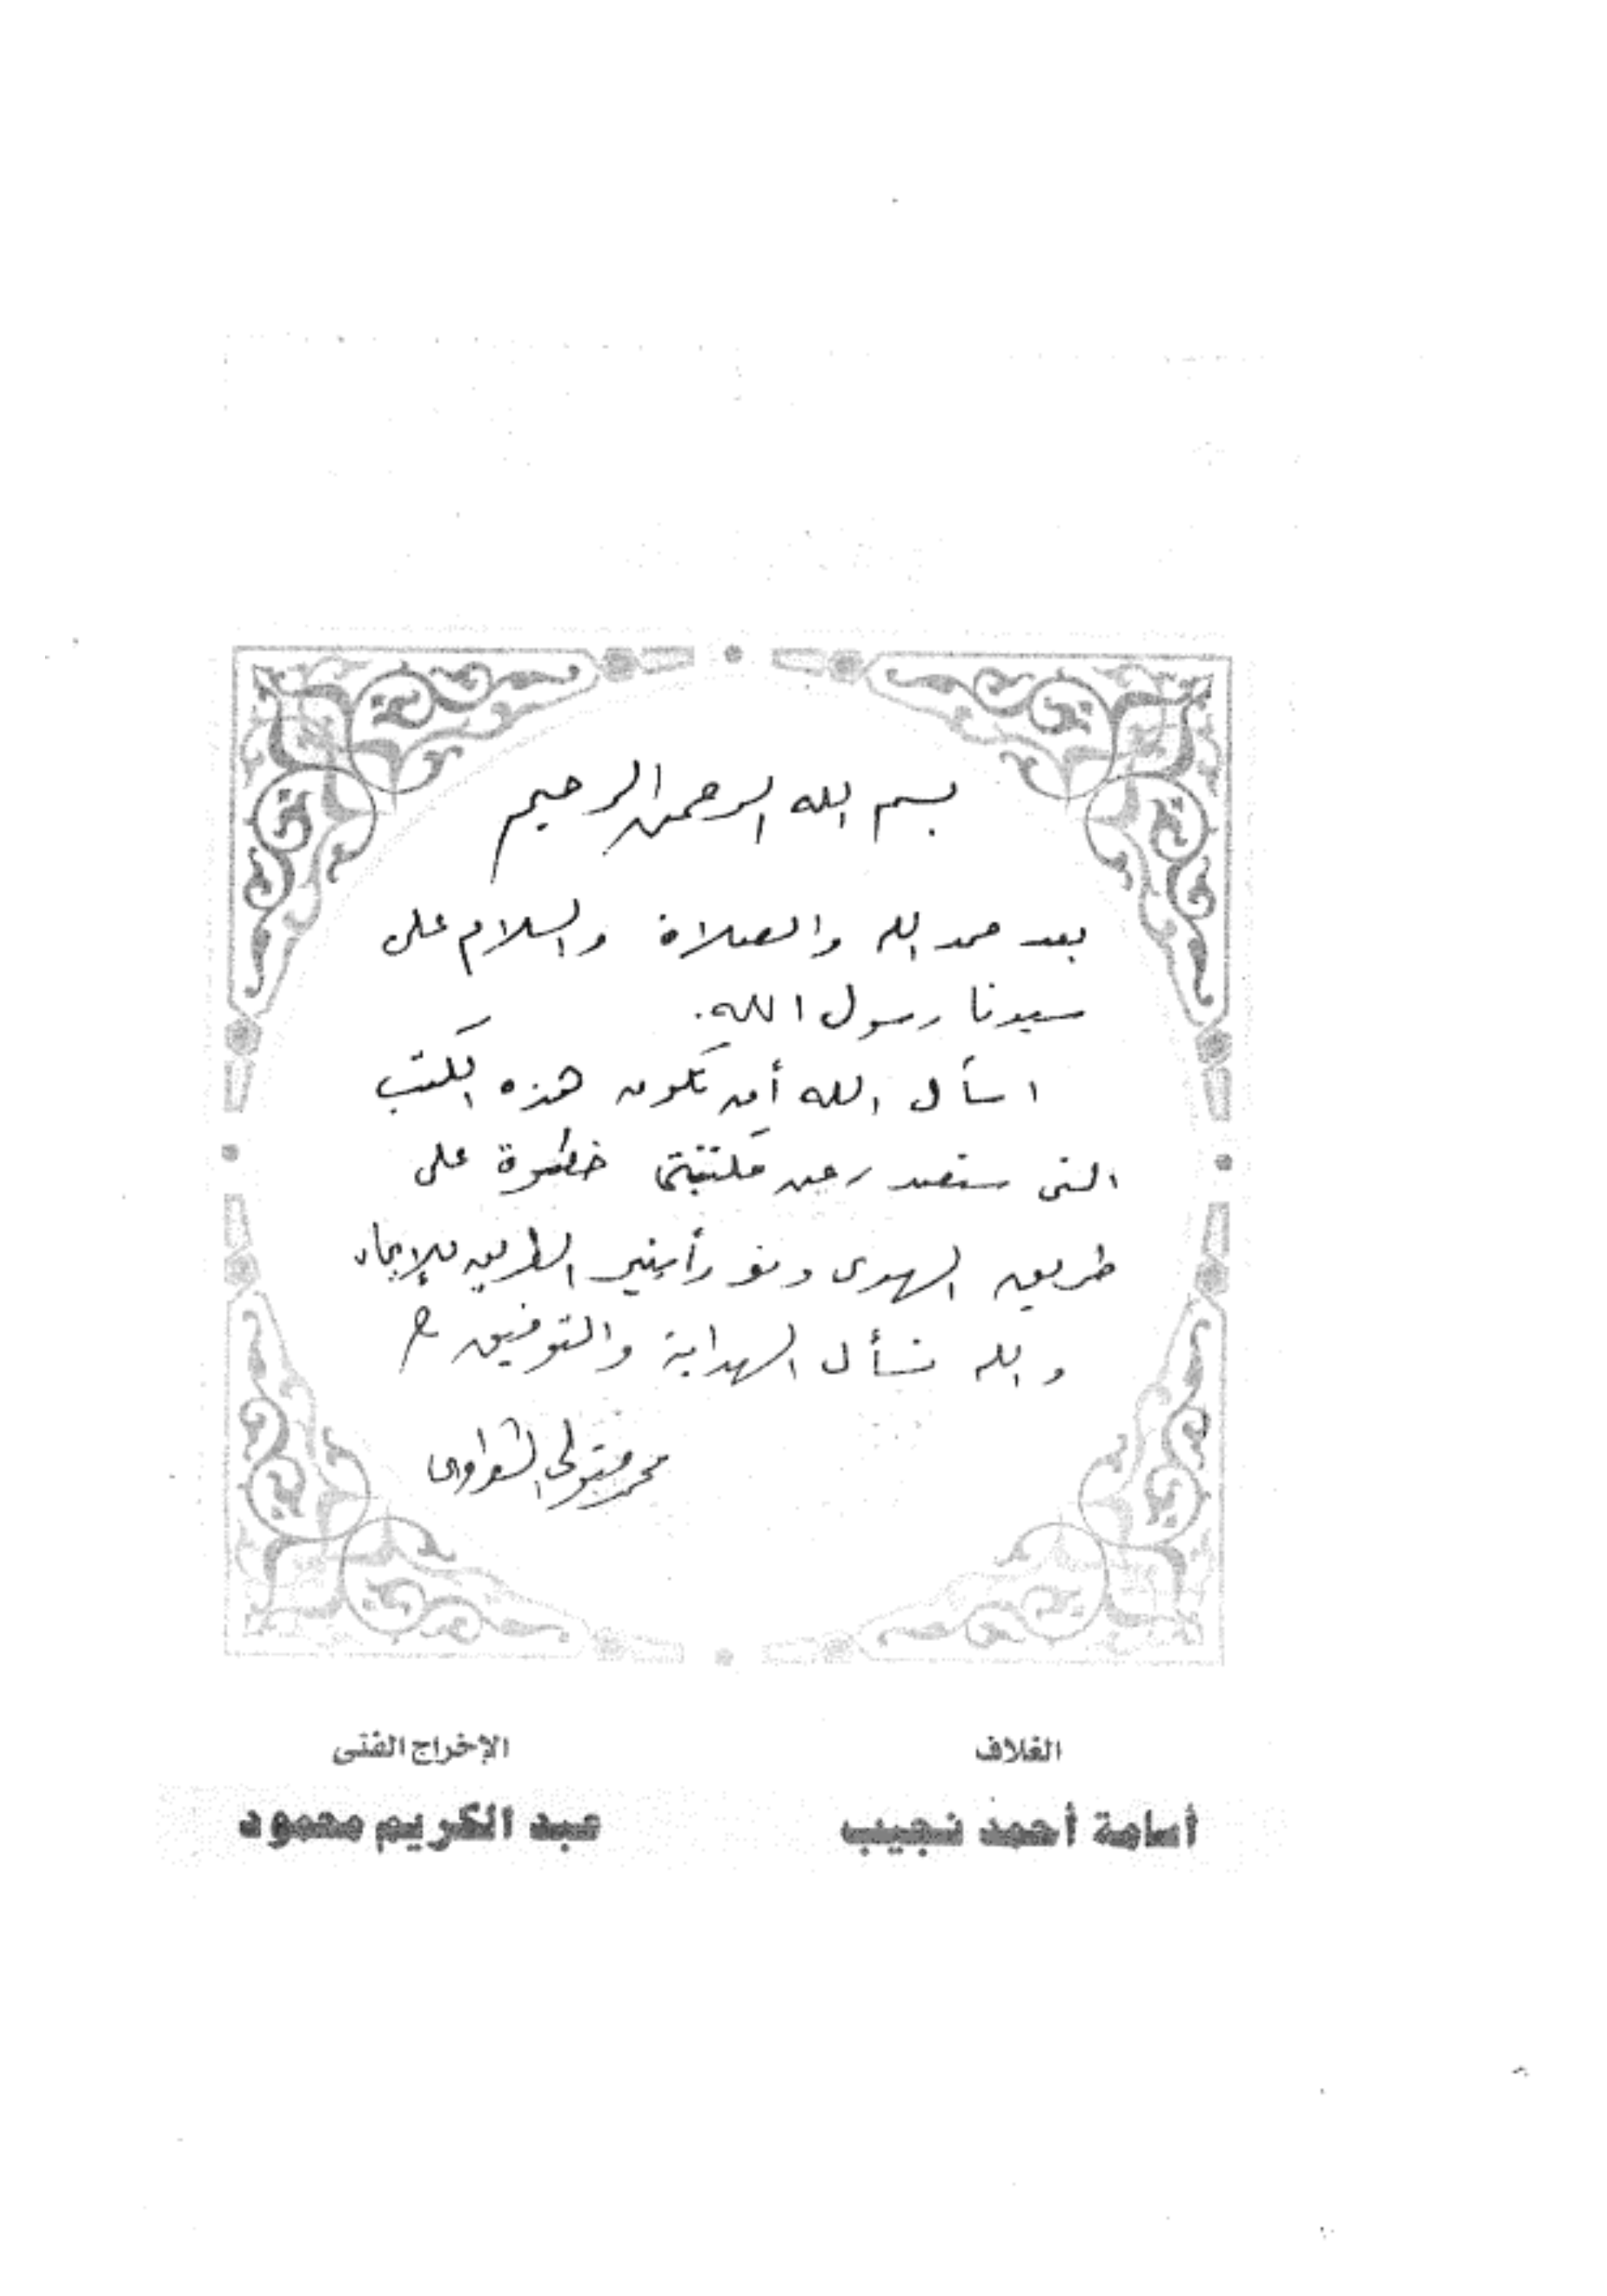 بسم الله الرحمن الرحيم
بعد حمد الله والصلاة والسلام على
سيدنا رسول الله.
اسأل الله أن تكون هذه الكتب
التى ستصدر عن مكتبتى خطوة على
طريق الهدى ونورا ينير الطريق للإيمان
والله نسأل الهداية والتوفيق
محمد متولى الشعراوى
الغلاف
الإخراج الفنى
أسامة أحمد نجيب
عبد الكريم محمود